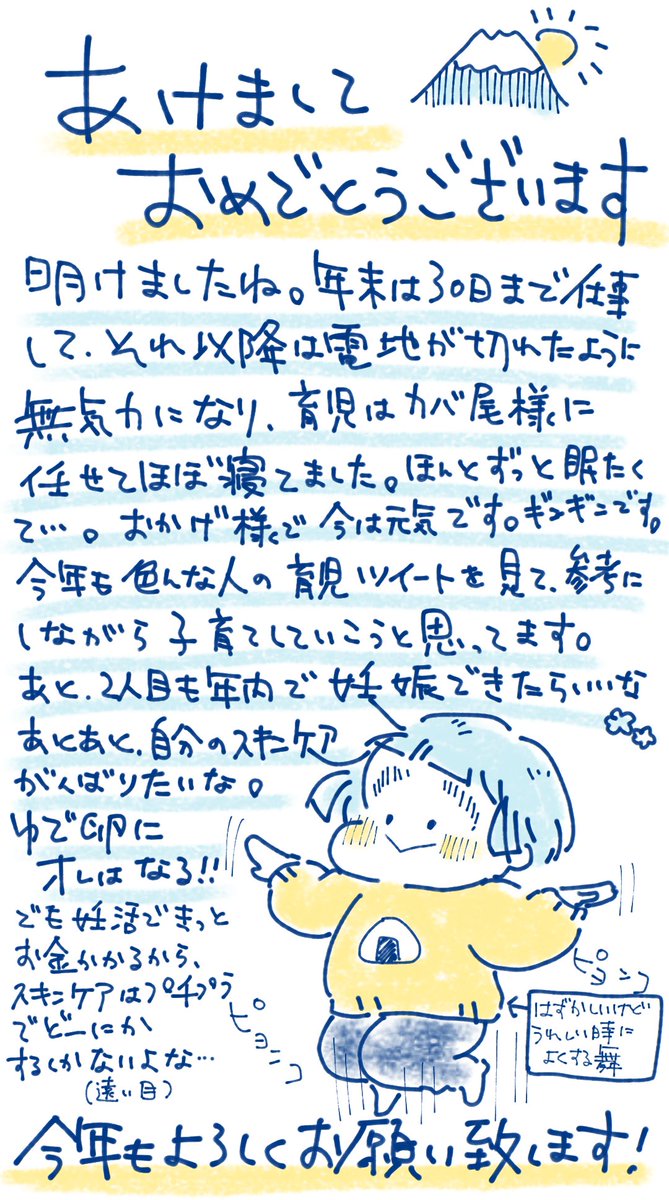 あけまして
おめでとうございます
明けましたね。年末は30日まで仕事
して、それ以降は電地が切れたように
無気力になり、育児はカバ尾様に
任せてほぼ寝てました。ほんとずっと眠たく
て…。おかげ様で今は元気です。ギンギンです。
今年も色んな人の育児ツイートを見て、参考に
しながら子育てしていこうと思ってます。
あと、2人目も年内で妊娠できたらいいな
あとあと、自分のスキンケア
がんばりたいな。
ゆで卵に
オレはなる!!
でも妊活できっと
お金かかるから、
スキンケアはプチプラ
でどーにか
するしかないよな…
(遠い目)
ピョンコ
ピョンコ
はずかしいけど
うれしい時に
よくする舞
今年もよろしくお願い致します!